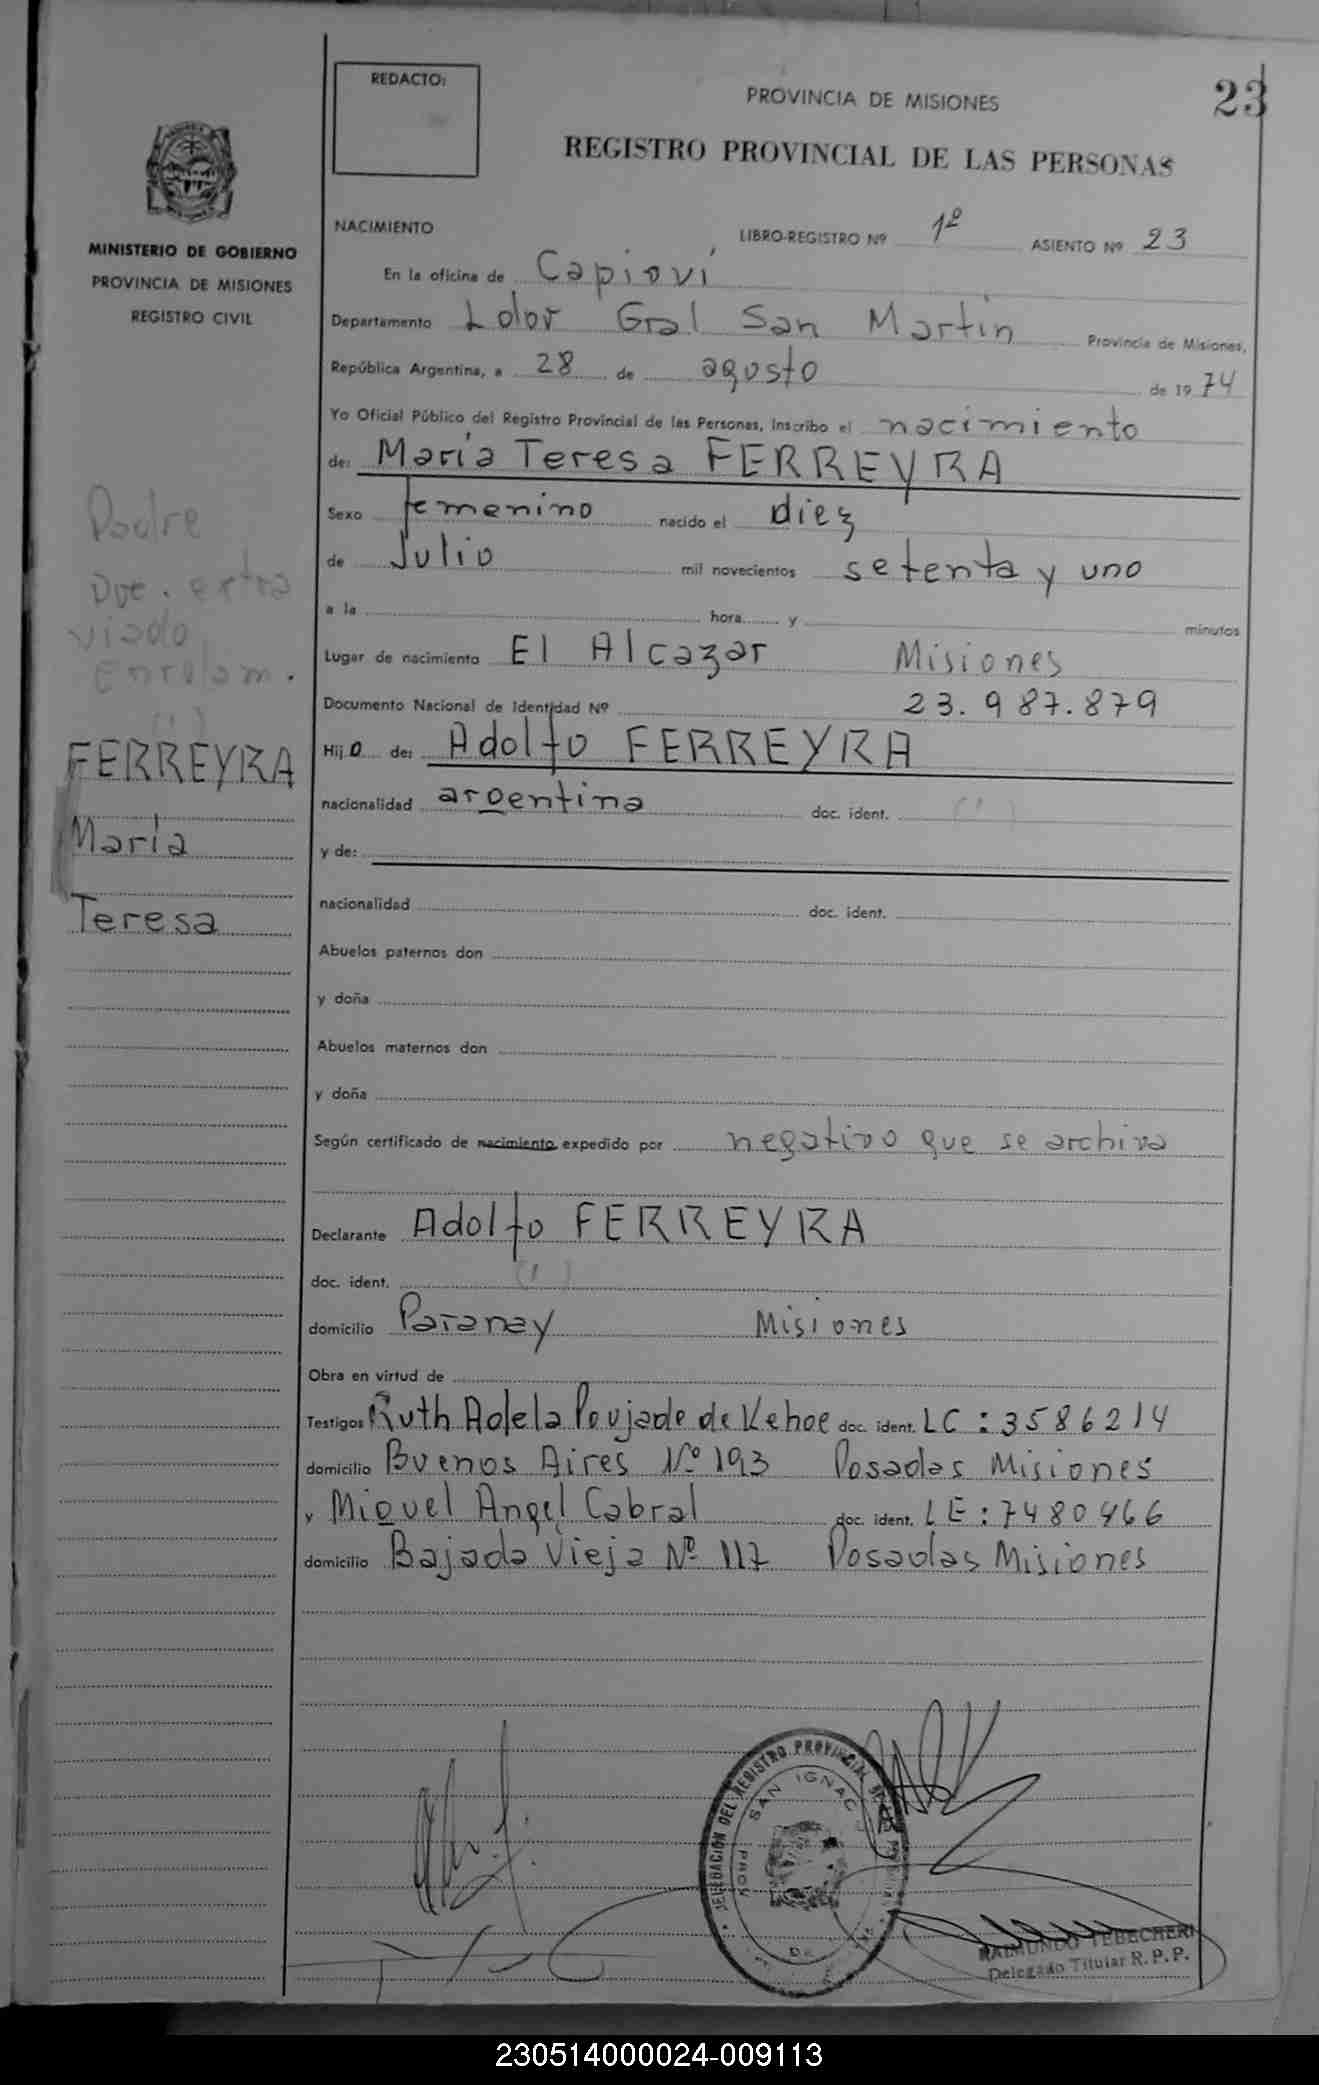 REDACTO:
PROVINCIA DE MISIONES
23
REGISTRO PROVINCIAL DE LAS PERSONAS
MINISTERIO DE GOBIERNO
PROVINCIA DE MISIONES
REGISTRO CIVIL
NACIMIENTO
LIBRO-REGISTRO Nº 1º ASIENTO Nº 23
En la oficina de Capioví
Departamento Ldor Gral San Martín Provincia de Misiones,
República Argentina, a 28 de agosto de 1974
Yo Oficial Público del Registro Provincial de las Personas, Inscribo el nacimiento
de: María Teresa FERREYRA
Sexo femenino nacido el diez
de Julio mil novecientos setenta y uno
a la hora y minutos
Lugar de nacimiento El Alcazar Misiones
Documento Nacional de Identidad Nº 23.987.879
Hijo de: Adolfo FERREYRA
nacionalidad argentina doc. ident. (1)
y de:
nacionalidad doc. ident.
Abuelos paternos don
y doña
Abuelos maternos don
y doña
Según certificado de nacimiento expedido por negativo que se archiva
Declarante Adolfo FERREYRA
doc. ident. (1)
domicilio Paranay Misiones
Obra en virtud de
Testigos Ruth Adela Poujade de Kehoe doc. ident. LC: 3586214
domicilio Buenos Aires Nº 193 Posadas Misiones
y Miguel Angel Cabral doc. ident. LE: 7480466
domicilio Bajada Vieja Nº 117 Posadas Misiones
Padre
Doc. extra
viado
Enrolam.
(1)
FERREYRA
María
Teresa
DELEGACIÓN DEL REGISTRO PROVINCIAL
SAN IGNACIO
RAIMUNDO TEBECHERI
Delegado Titular R. P. P.
230514000024-009113